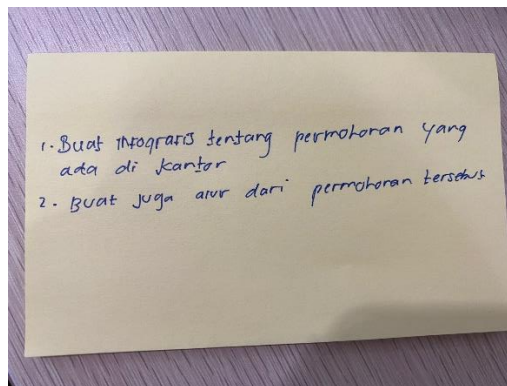 1. Buat infografis tentang permohonan yang
ada di kantor
2. Buat juga alur dari permohonan tersebut